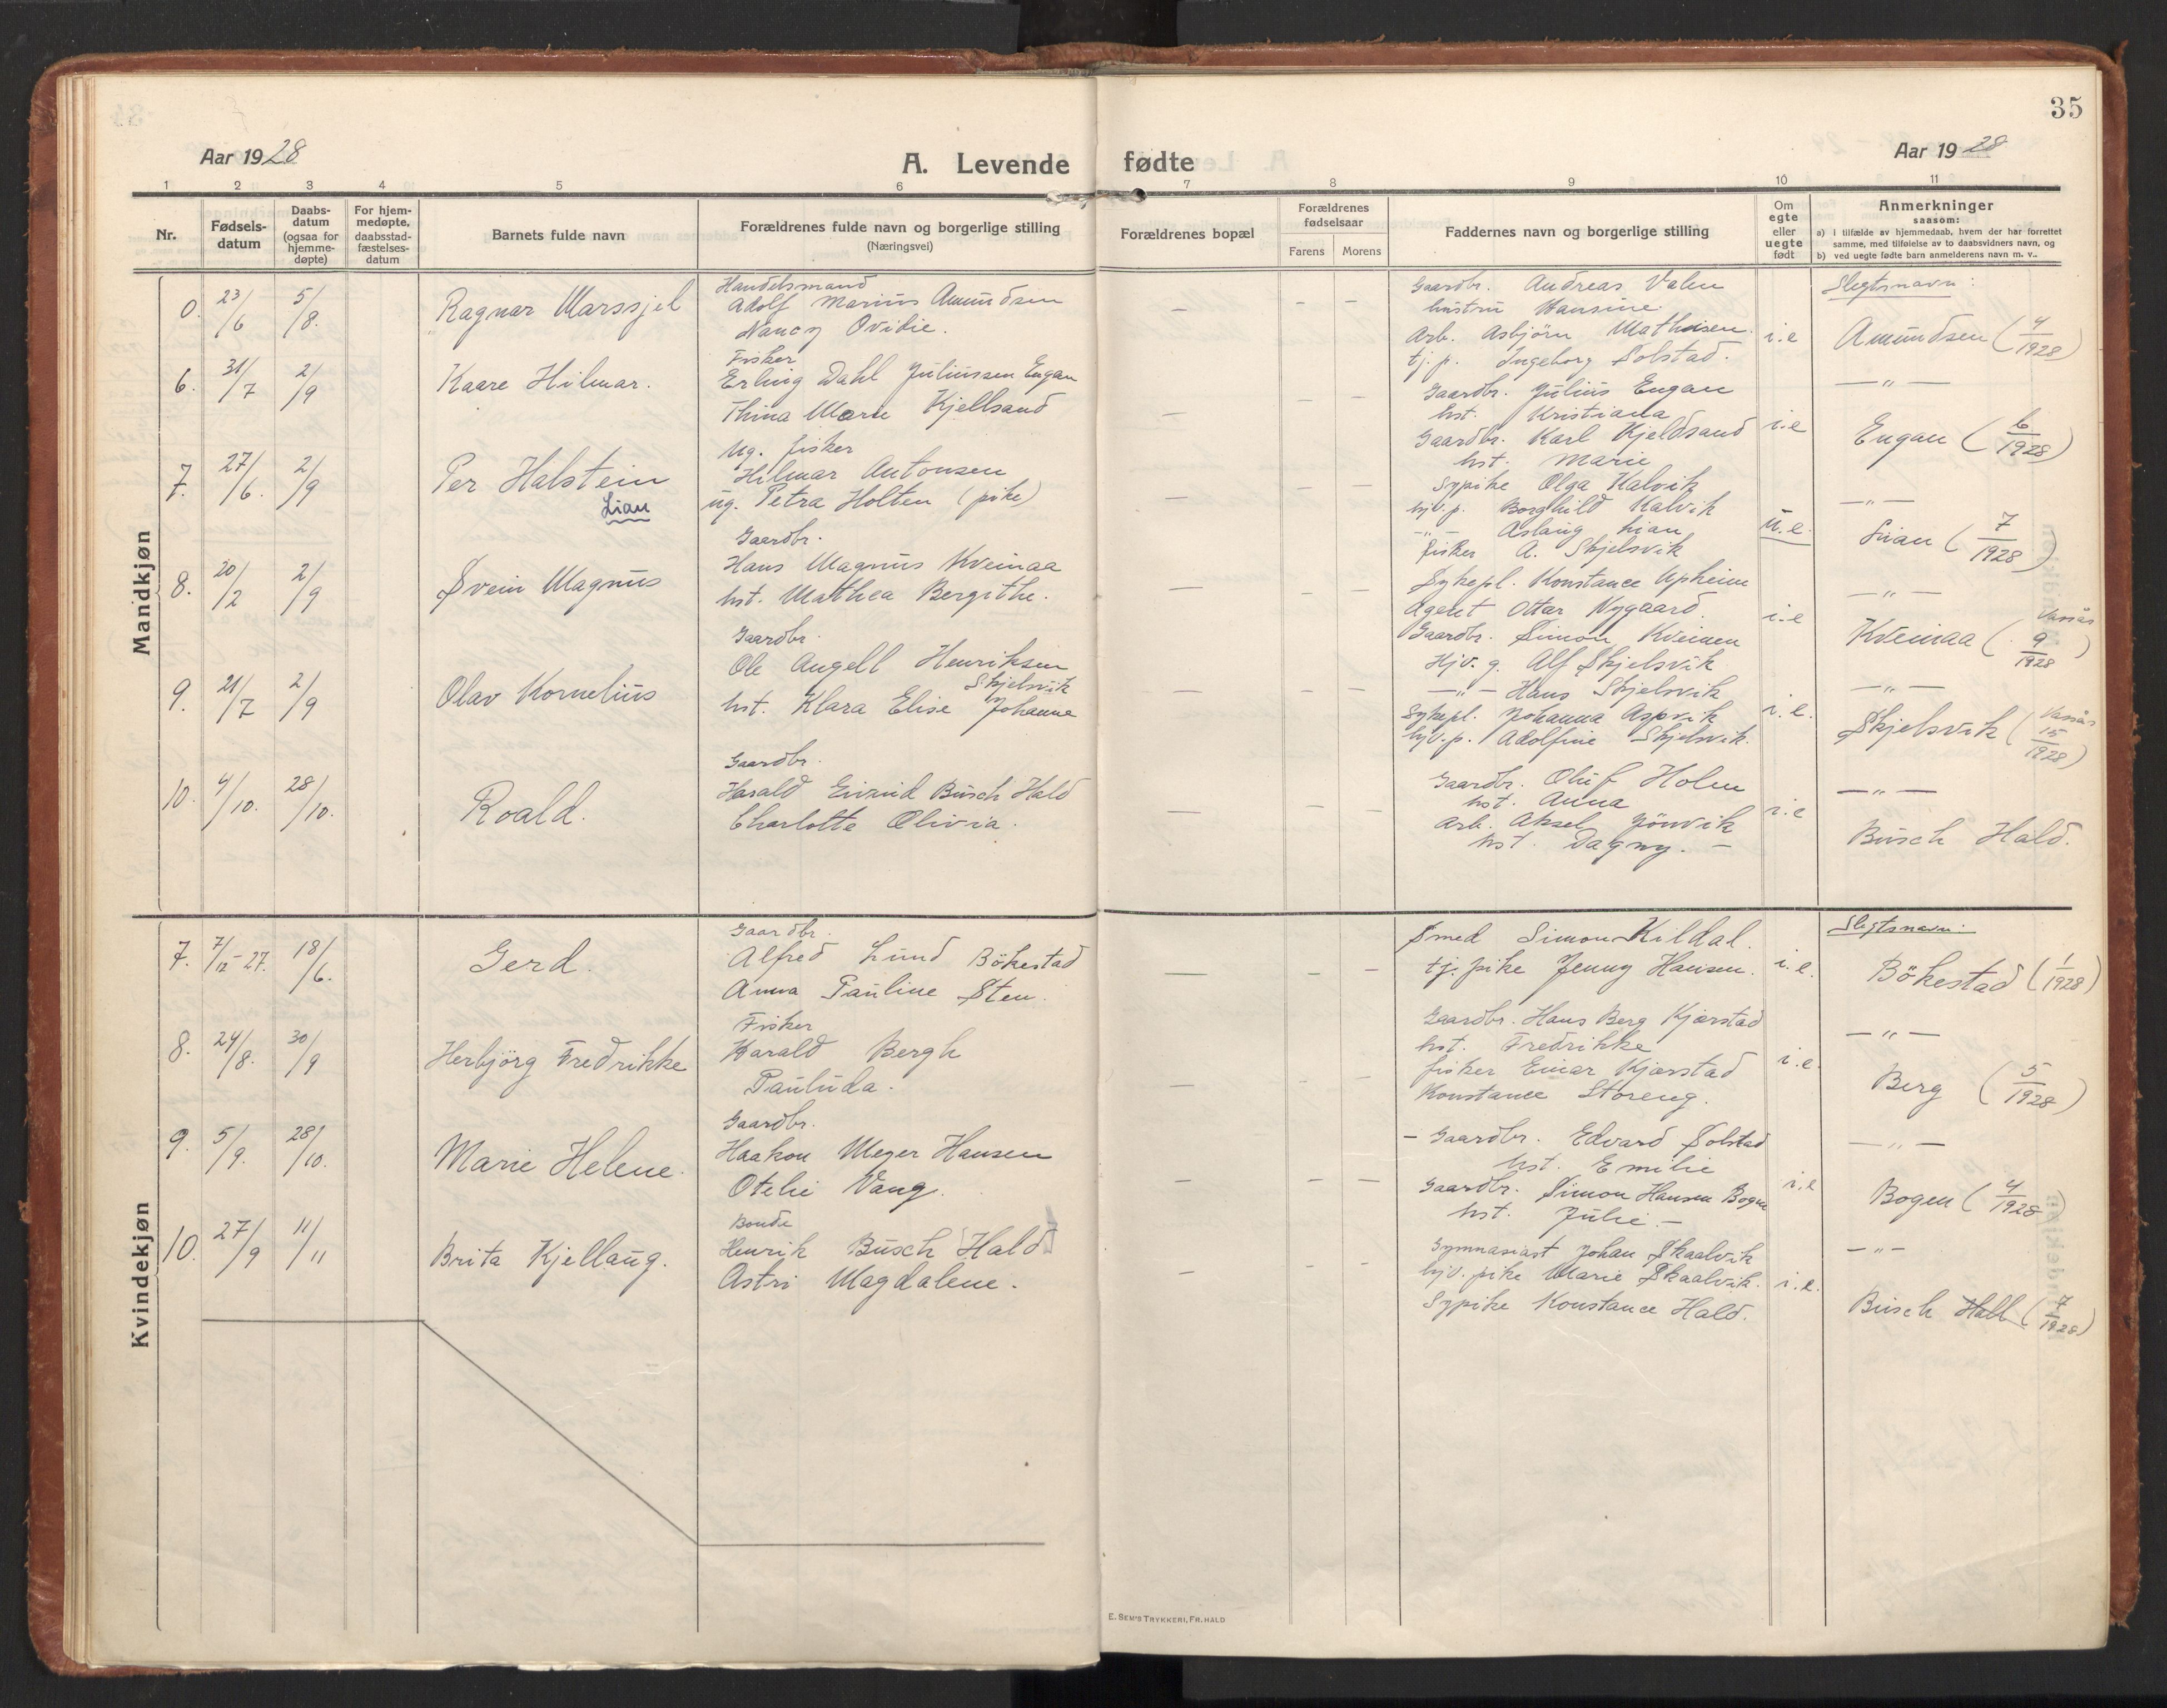 35
Aar 1928
A. Levende fødte
Aar 1928
1 2 3 4 5 6 7 8 9 10 11
Nr.
Fødsels-
datum
Daabs-
datum
(ogsaa for
hjemme-
døpte)
For hjem-
medøpte,
daabsstad-
fæstelses-
datum
Barnets fulde navn
Forældrenes fulde navn og borgerlige stilling
(Næringsvei)
Forældrenes bopæl
Forældrenes
fødselsaar
Farens Morens
Faddernes navn og borgerlige stilling
Om
egte
eller
uegte
født
Anmerkninger
saasom:
a) i tilfælde av hjemmedaab, hvem der har forrettet
samme, med tilføielse av to daabsvidners navn, og
b) ved uegte fødte barn anmelderens navn m. v..
Mandkjøn
0. 23/6 5/8. Ragnar Marssjel
Handelsmand
Adolf Marius Amundsen
Nancy Ovidie.
— – –
Gaardbr. Andreas Valen
hustru Hansine.
Arb. Asbjörn Mathisen.
tj. p. Ingeborg Solstad.
i.e
Slegtsnavn:
Amundsen (4/1928)
6. 31/7 2/9 Kaare Hilmar.
Fisker
Erling Dahl Juliussen Engan
Thina Marie Kjellsand
— – –
Gaardbr. Julius Engan
hst. Kristiana
Gaardbr. Karl Kjeldsand
hst. Marie
i.e
— " —
Engan (6/1928)
7. 27/6. 2/9 Per Halstein
Lian
Ug. fisker
Hilmar Antonsen
ug. Petra Holten (pike)
— – –
Sypike Olga Kalvik
hjv. p. Borghild Kalvik
— " — Aslaug Lian
fisker A. Skjelsvik
u.e.
— " —
Lian (7/1928)
8. 20/2 2/9 Svein Magnus
Gaardbr.
Hans Magnus Kveinaa
hst. Mathea Bergithe.
— – –
Sykepl. Konstance Upheim
Agent Ottar Nygaard
Gaardbr. Simon Kveinen
Hjv. g. Alf Skjelsvik
i.e
— " —
Kveinaa (Vassås 9/1928)
9. 21/7 2/9 Olav Kornelius
Gaardbr.
Ole Angell Henriksen
Skjelsvik
hst. Klara Elise Johanne
— – –
— " — Hans Skjelsvik
Sykepl. Johanna Aspvik
hjv. p. Adolfine Skjelsvik.
i.e.
— " —
Skjelsvik (Vassås 15/1928)
10. 4/10. 28/10. Roald.
Gaardbr.
Harald Eivind Busch Hald
Charlotte Olivia.
— – –
Gaardbr. Oluf Holm
hst. Anna
Arb. Aksel Jönvik
hst. Dagny. –
i.e
— " —
Busch Hald.
Kvindekjøn
7. 7/12-27. 18/6. Gerd.
Gaardbr.
Alfred Lund Bökestad
Anna Pauline Sten.
— – –
Smed Simon Kildal.
tj. pike Jenny Hansen.
i.e.
Slegtsnavn:
Bökestad (1/1928)
8. 24/8. 30/9 Herbjörg Fredrikke
Fisker
Harald Bergh
Pauluda.
— – –
Gaardbr. Hans Berg Kjærstad
hst. Fredrikke
fisker Einar Kjærstad
Konstance Storeng.
i.e.
— " —
Berg (5/1928)
9. 5/9. 28/10. Marie Helene.
Gaardbr.
Haakon Meyer Hansen
Otelie Vang.
— – –
– Gaardbr. Edvard Solstad
hst. Emilie
Gaardbr. Simon Hansen Bogen
hst. Julie. –
i.e
— " —
Bogen (4/1928)
10. 27/9 11/11 Brita Kjellaug.
Bonde
Henrik Busch Hald
Astri Magdalene.
— – –
Gymnasiast Johan Skaalvik
hjv. pike Marie Skaalvik.
Sypike Konstance Hald.
i.e.
— " —
Busch Hald (7/1928)
E. SEM'S TRYKKERI, FR.HALD